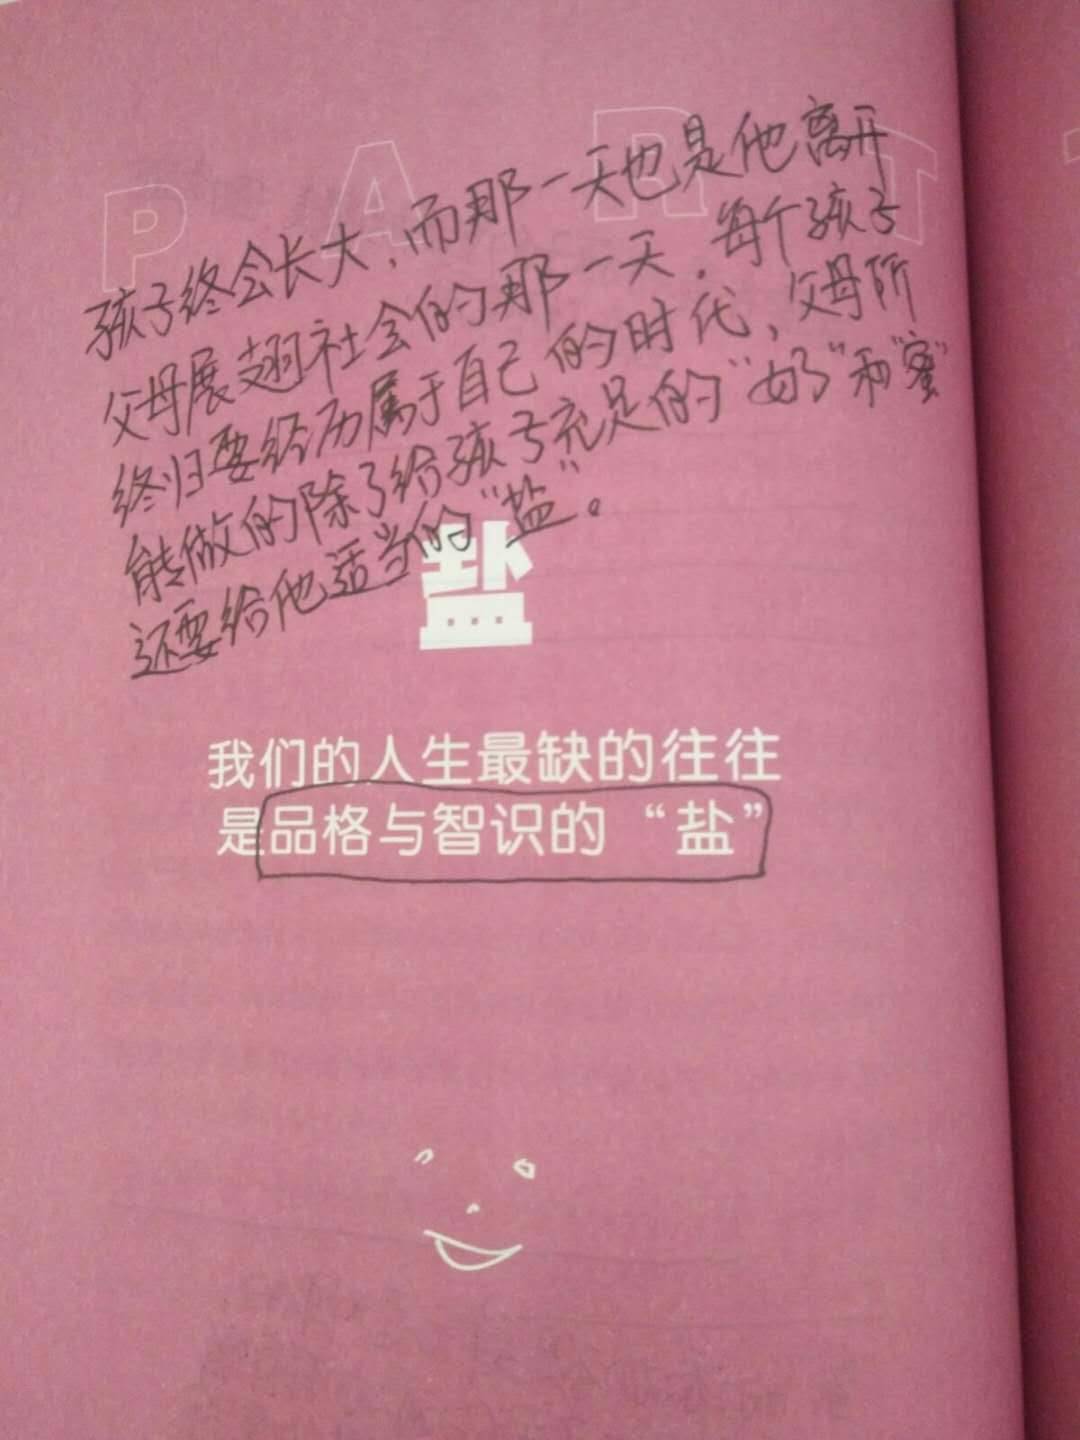 PART
孩子终会长大,而那一天也是他离开
父母展翅社会的那一天.每个孩子
终归要经历属于自己的时代,父母所
能做的除了给孩子充足的"奶"和"蜜"
还要给他适当的"盐"。
盐
我们的人生最缺的往往
是品格与智识的“盐”